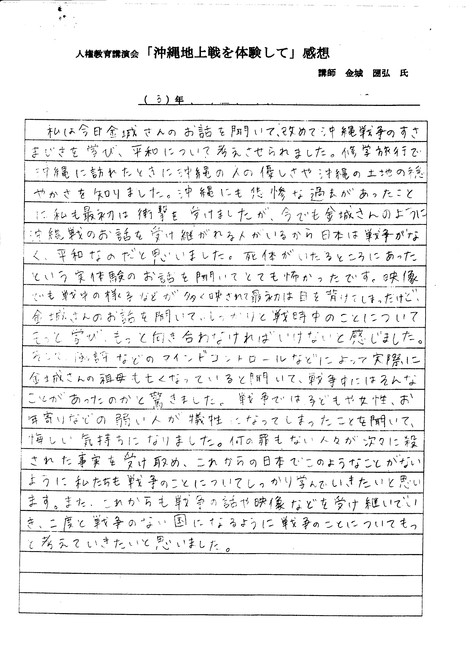 人権教育講演会「沖縄地上戦を体験して」感想
講師 金城 氏
(3)年
私は今日金城さんのお話を聞いて、改めて沖縄戦争のすさ
まじさを学び、平和について考えさせられました。修学旅行で
沖縄に訪れたときに沖縄の人の優しさや沖縄の土地の穏
やかさを知りました。沖縄にも悲惨な過去があったこと
に私も最初は衝撃を受けましたが、今でも金城さんのように
沖縄戦のお話を受け継がれる人がいるから日本は戦争がな
く、平和なのだと思いました。死体がいたるところにあった
という実体験のお話を聞いてとても怖かったです。映像
でも戦争中の様子などが多く映されて最初は目を背けてしまったけど、
金城さんのお話を聞いて、しっかりと戦時中のことについて
もっと学び、もっと向き合わなければいけないと感じました。
そして、などのマインドコントロールなどによって実際に
金城さんの祖母も亡くなっていると聞いて、戦争中にはそんな
ことがあったのかと驚きました。戦争では子どもや女性、お
年寄りなどの弱い人が犠牲になってしまったことを聞いて、
悔しい気持ちになりました。何の罪もない人々が次々に殺
された事実を受け取め、これからの日本でこのようなことがない
ように私たちも戦争のことについてしっかり学んでいきたいと思い
ます。また、これからも戦争の話や映像などを受け継いでい
き、二度と戦争のない国になるように戦争のことについてもっ
と考えていきたいと思いました。